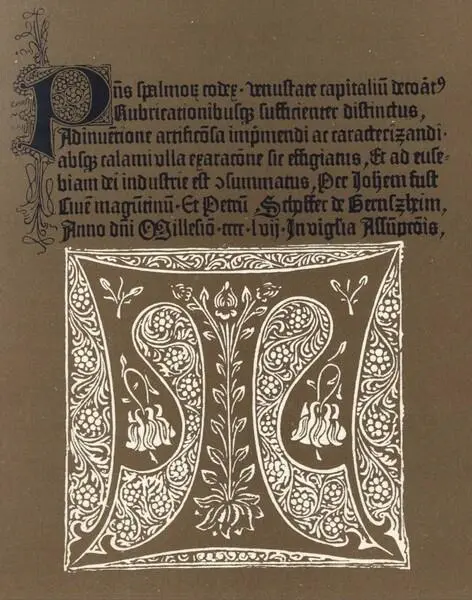 Pñs spalmoꝝ codex · venustate capitaliũ decoãtꝰ
Rubricationibusqꝫ sufficienter distinctus,
Adinuẽtione artificõsa imp̃mendi ac caracterizandi ·
absqꝫ calami vlla exaracõne sic effigiatus, Et ad euse-
biam dei industrie est ↄsummatus, Per Johem̃ fust
Ciuẽ magũtinũ · Et Petrũ Schoffer de Gernszheim,
Anno dñi Millesiõ · cccc · lvij · In vigl̃ia Assũpcõis,